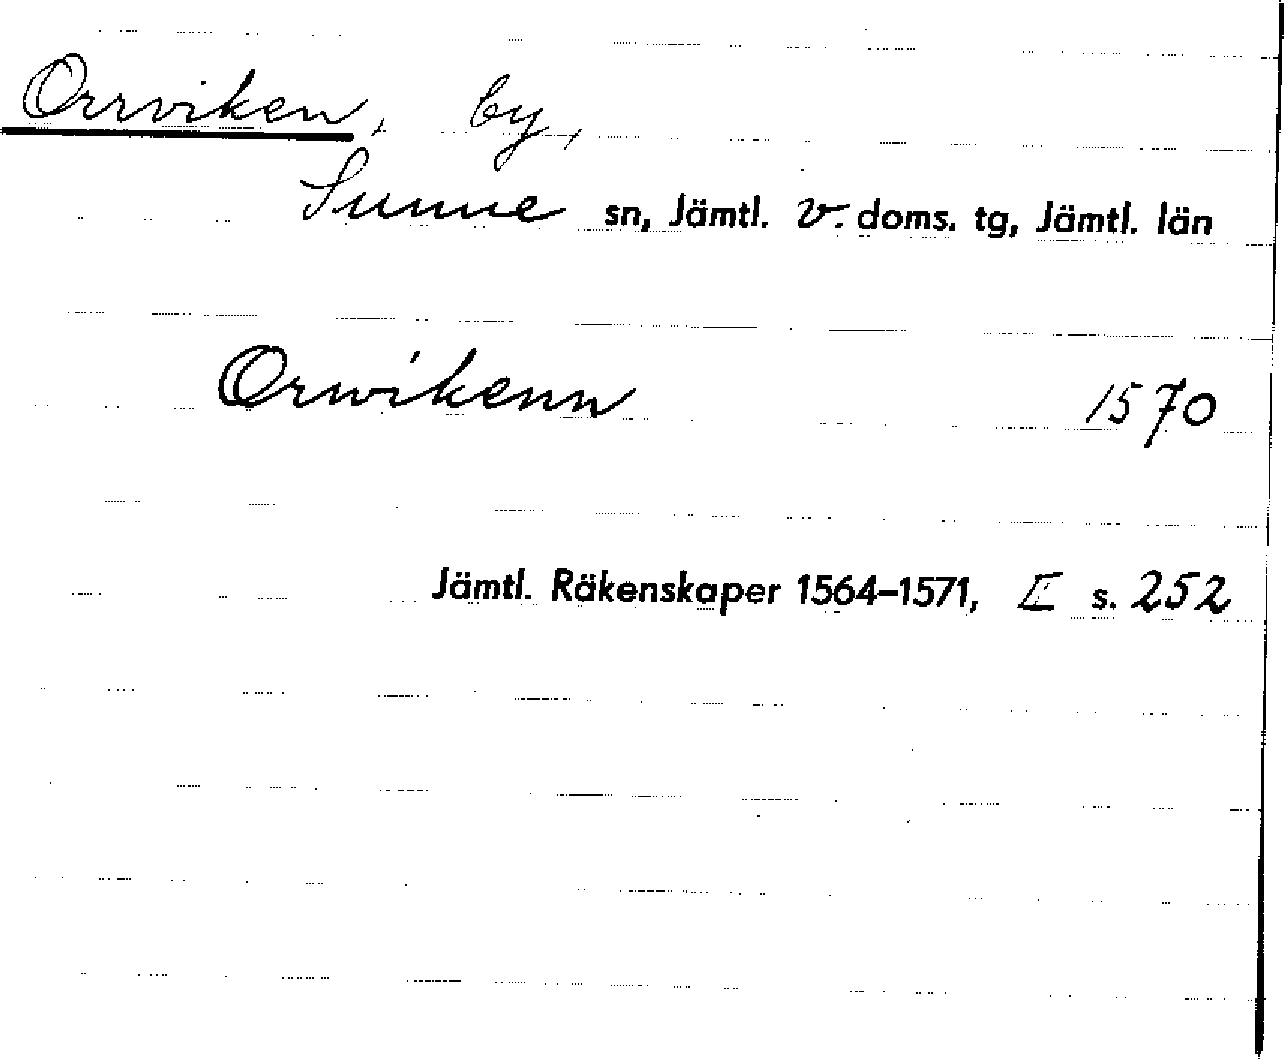 Orrviken, by,
Sunne sn, Jämtl. v. doms. tg, Jämtl. län
Orwikenn 1570
Jämtl. Räkenskaper 1564–1571, II s. 252